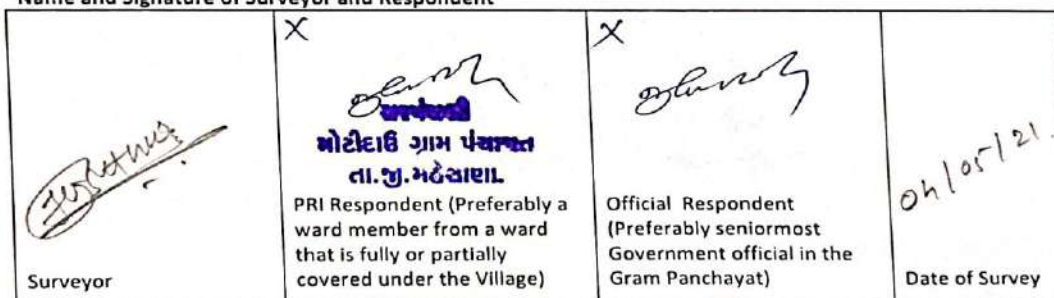 Name and Signature of Surveyor and Respondent
X
મોટીદાઉ ગ્રામ પંચાયત
તા.જી.મહેસાણા.
PRI Respondent (Preferably a
ward member from a ward
that is fully or partially
covered under the Village)
X
Official Respondent
(Preferably seniormost
Government official in the
Gram Panchayat)
Surveyor
04/05/21.
Date of Survey